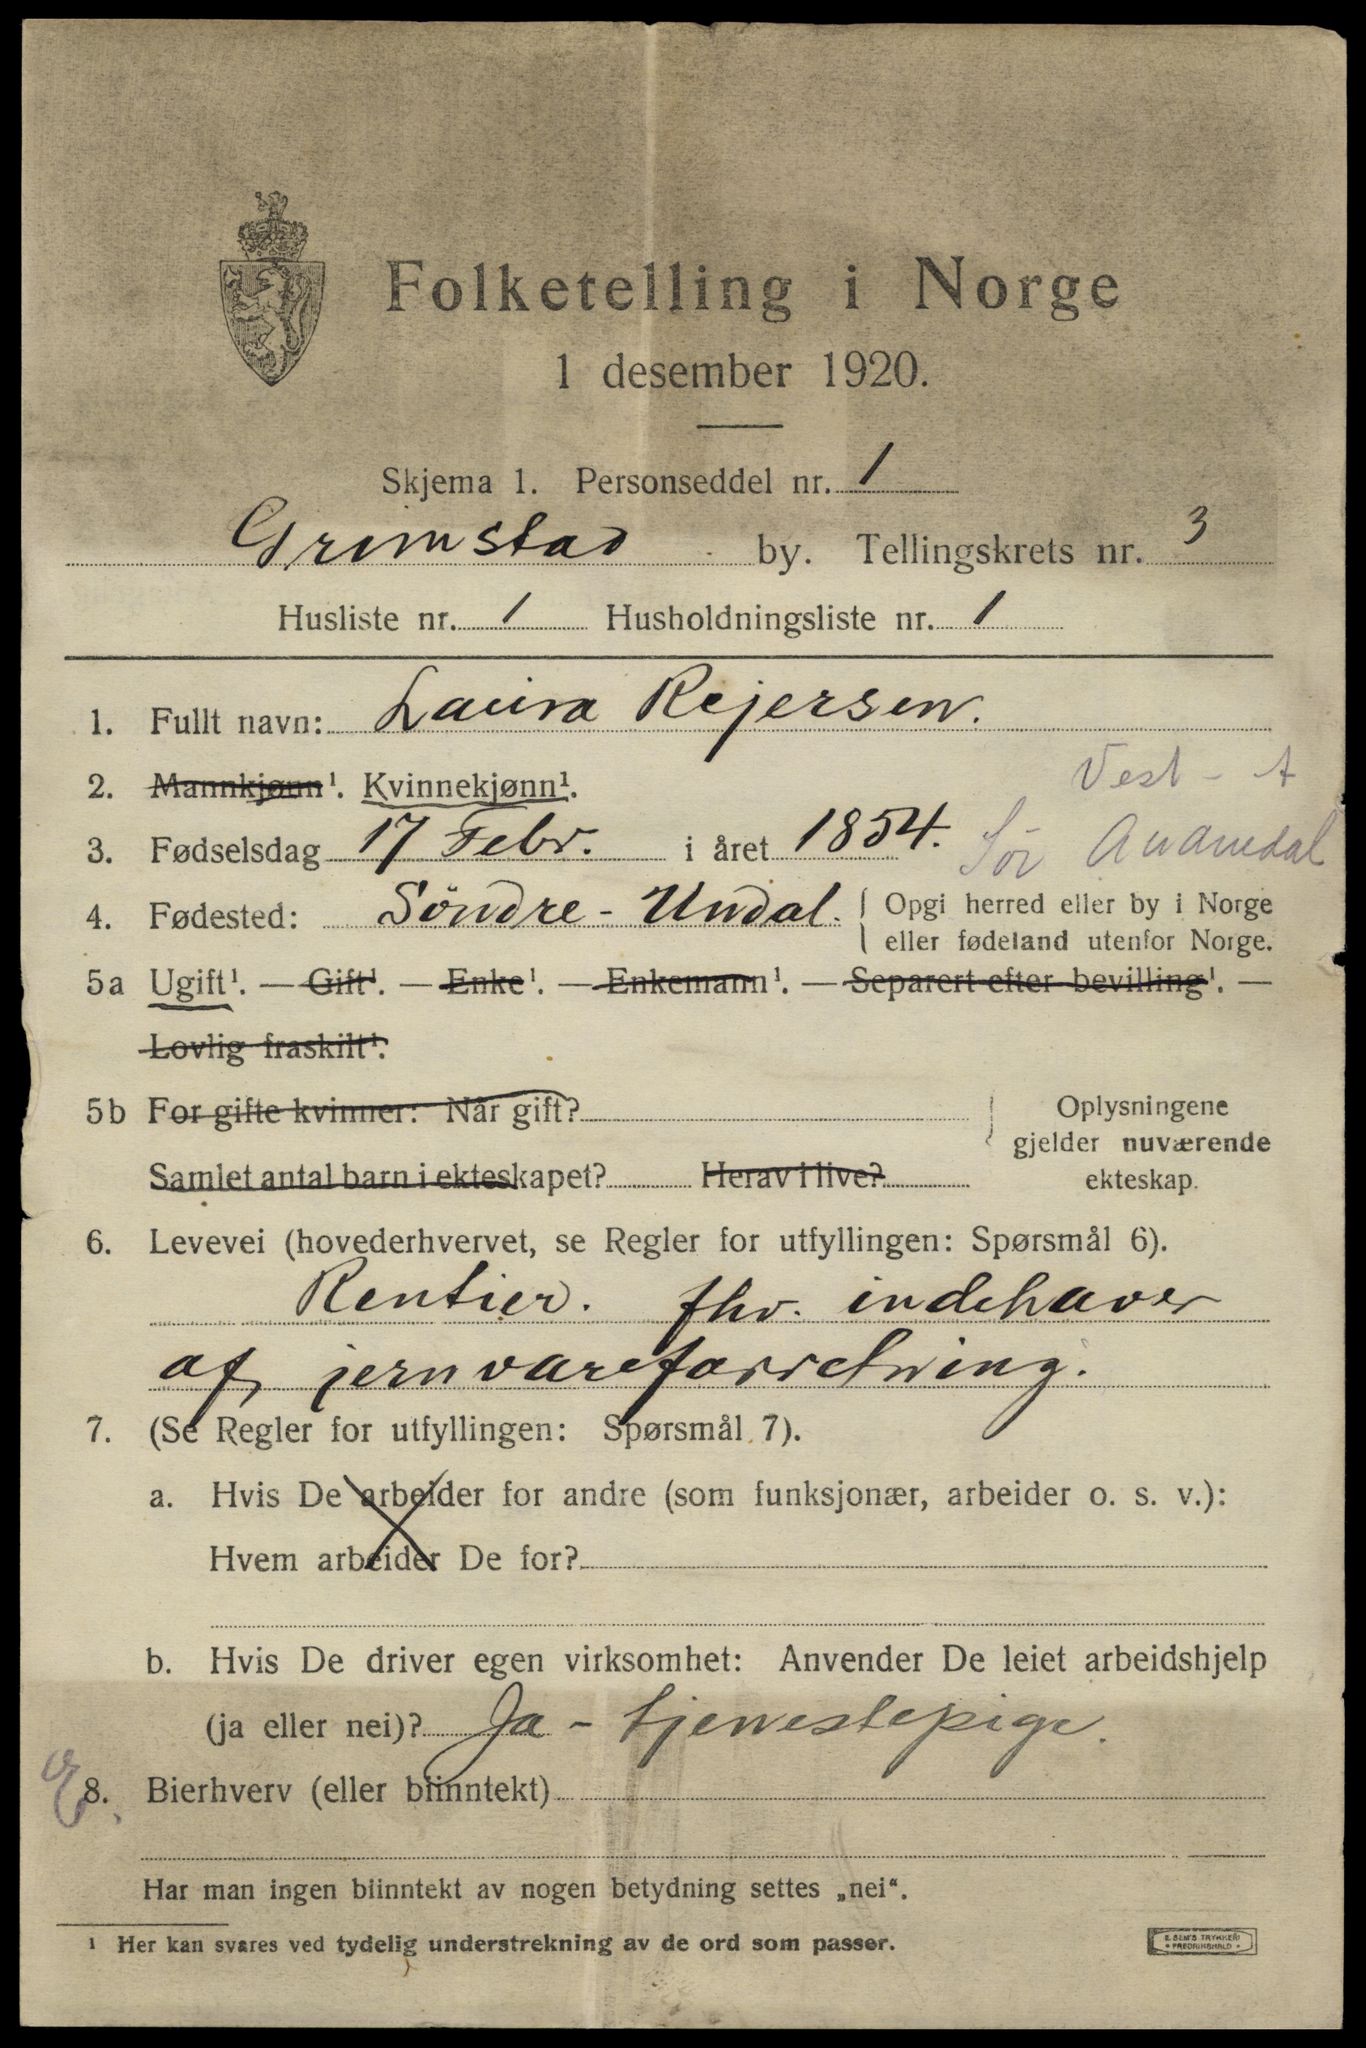 Folketelling i Norge
1 desember 1920.
Skjema 1. Personseddel nr. 1
Grimstad by. Tellingskrets nr. 3
Husliste nr. 1 Husholdningsliste nr. 1
1. Fullt navn: Laura Rejersen.
2. Mannkjønn¹. Kvinnekjønn¹.
Vest - A
3. Fødselsdag 17 Febr. i året 1854.
Sør Audnedal
4. Fødested: Söndre - Undal. Opgi herred eller by i Norge
eller fødeland utenfor Norge.
5a Ugift¹. — Gift¹. — Enke¹. — Enkemann¹. — Separert efter bevilling¹. —
Lovlig fraskilt¹.
5b For gifte kvinner: Når gift?
Samlet antal barn i ekteskapet? Herav i live?
Oplysningene
gjelder nuværende
ekteskap.
6. Levevei (hovederhvervet, se Regler for utfyllingen: Spørsmål 6).
Rentier. fhv. indehaver
af jernvareforretning.
7. (Se Regler for utfyllingen: Spørsmål 7).
a. Hvis De arbeider for andre (som funksjonær, arbeider o. s. v.):
Hvem arbeider De for?
b. Hvis De driver egen virksomhet: Anvender De leiet arbeidshjelp
(ja eller nei)? Ja - tjenestepige.
8. Bierhverv (eller biinntekt)
Har man ingen biinntekt av nogen betydning settes „nei“.
¹ Her kan svares ved tydelig understrekning av de ord som passer.
E. SEM'S TRYKKERI
FREDRIKSHALD